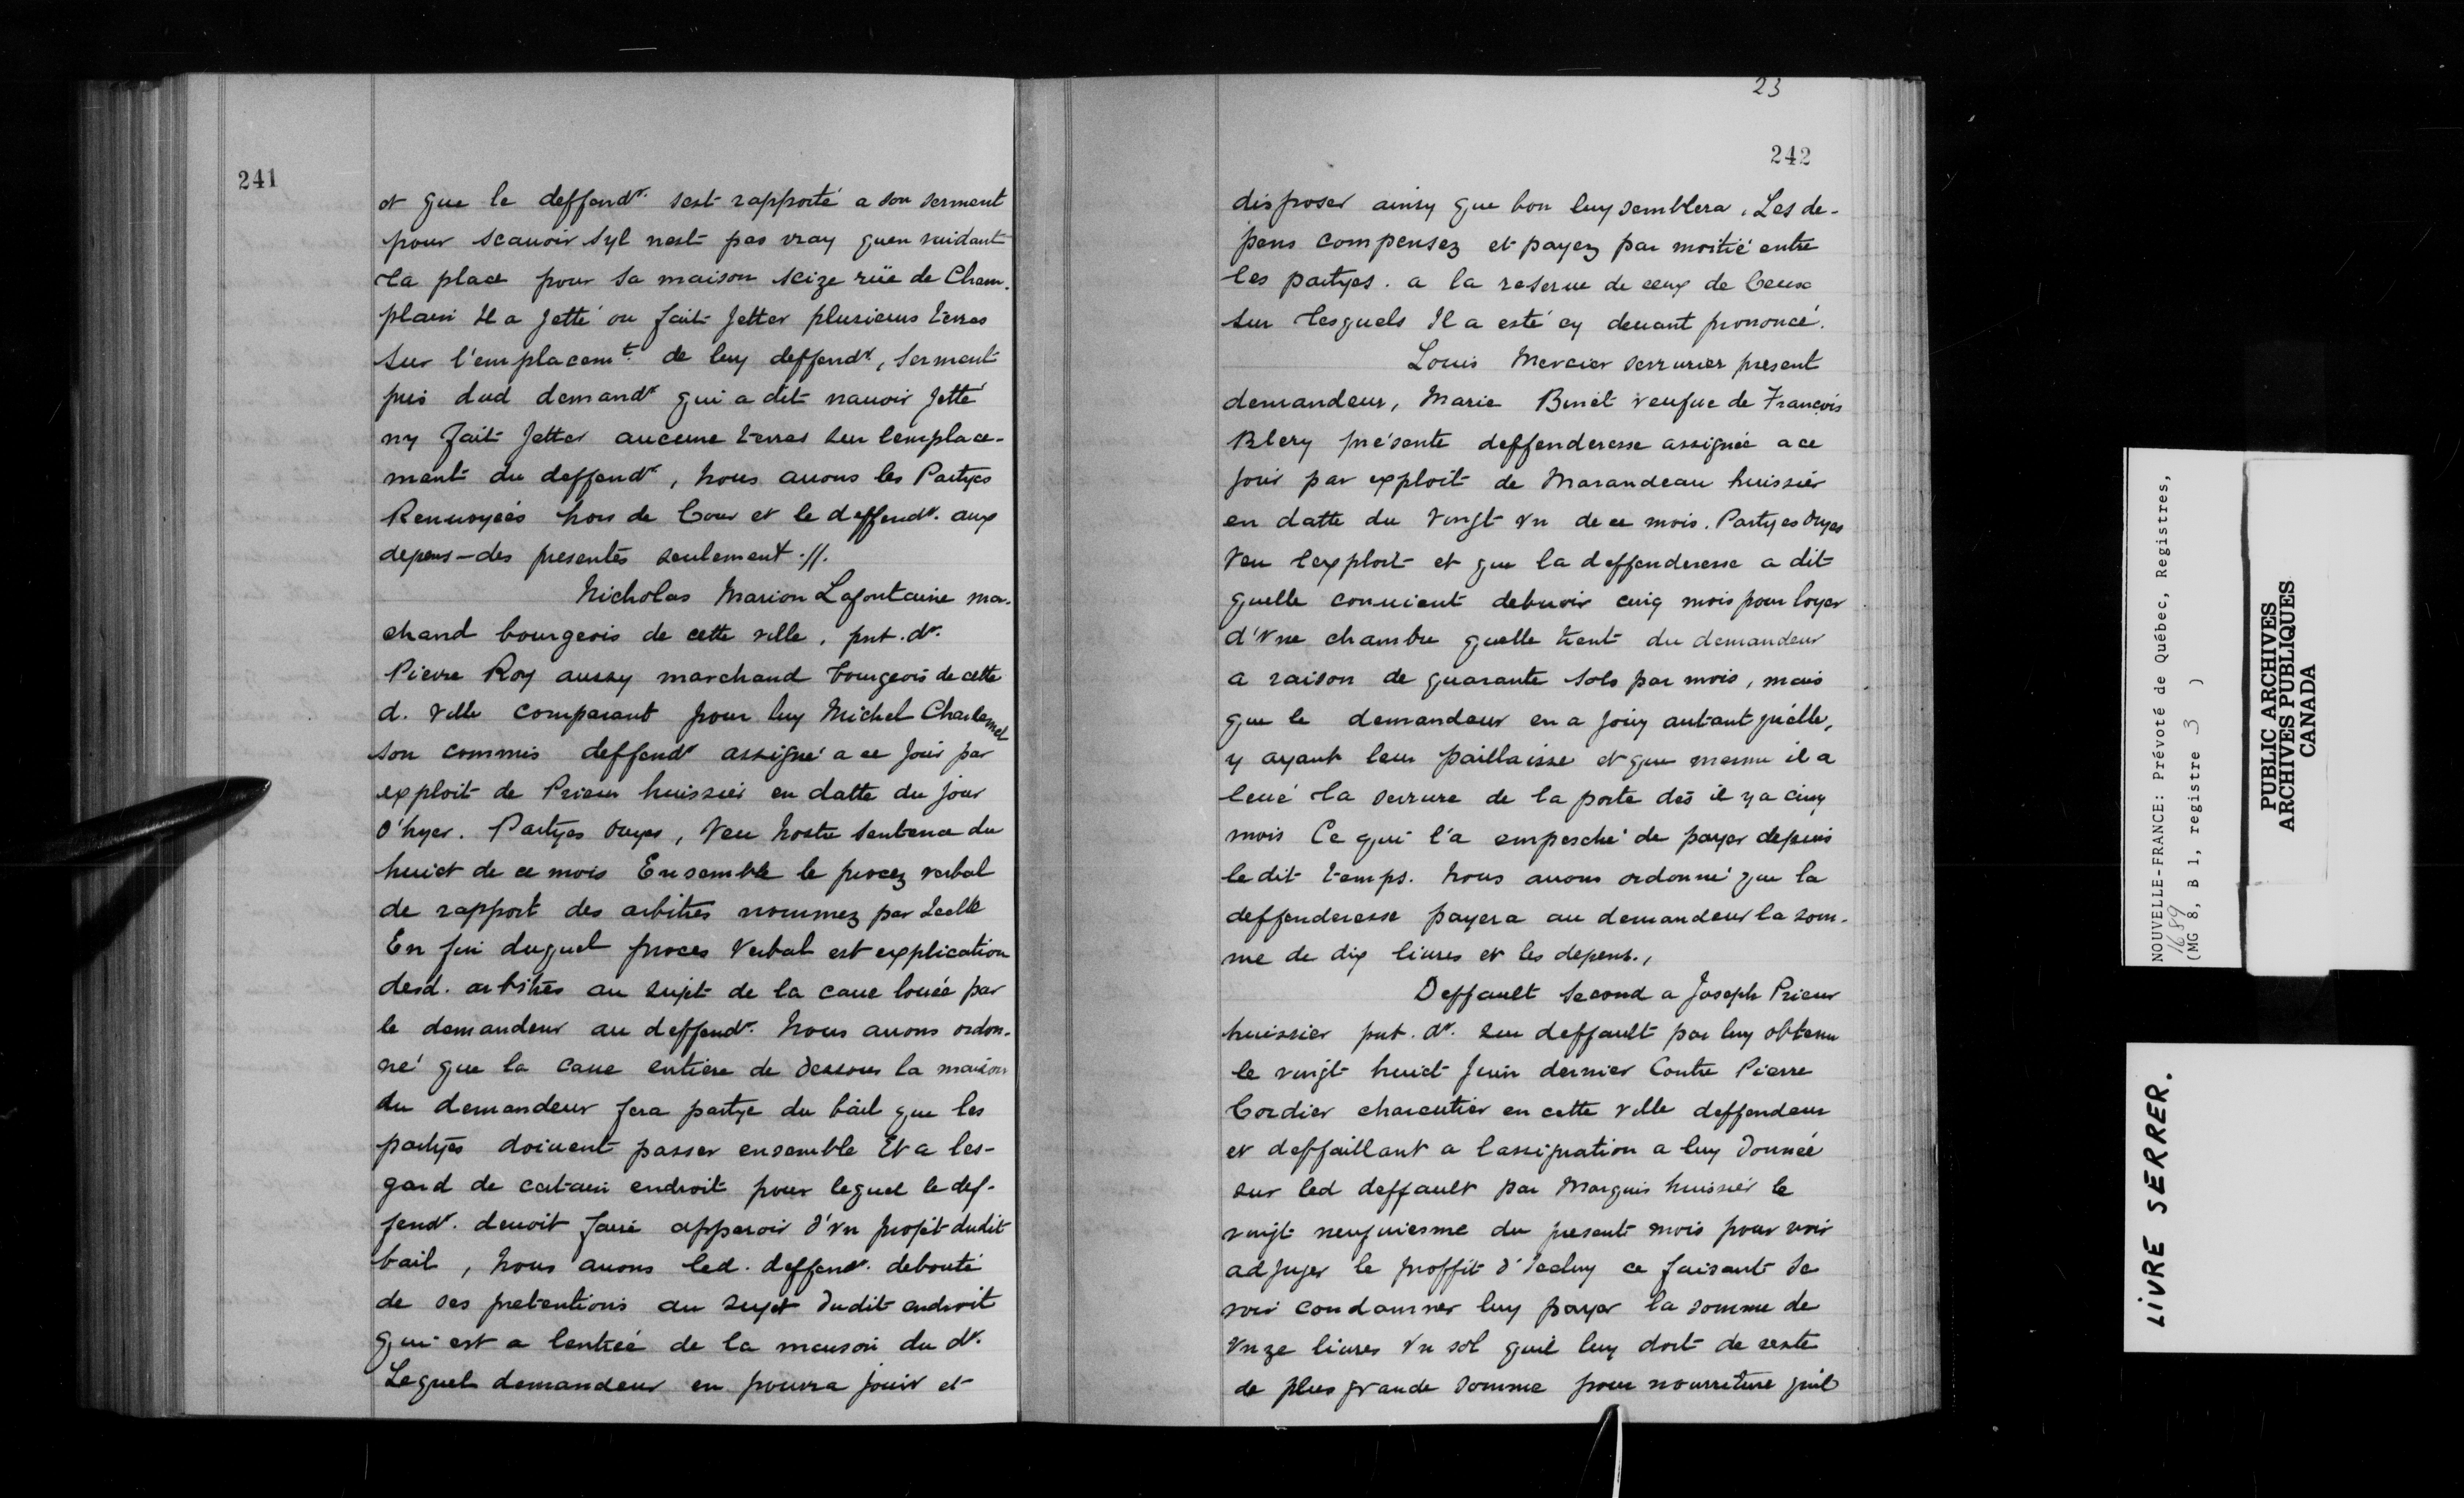 241
et que le deffendr. sest rapporté a son serment
pour scauoir syl nest pas vray quen vuidant
la place pour sa maison seize rüe de Cham-
plain Il a Jetté ou fait Jetter plusieurs terres
sur l'emplacemt. de luy deffendr, serment
pris dud demandr qui a dit nauoir Jetté
ny fait Jetter aucune terres sur lemplace-
ment du deffendr, nous auons les Partyes
Renuoyées hors de Cour et le deffendr. aux
depens - des presentes seulement .//.
Nicholas Marion Lafontaine mar-
chand bourgeois de cette ville, pnt. dr.
Pierre Roy aussy marchand bourgeois de cette
d. ville comparant pour luy Michel Charlemel
son commis deffendr assigné a ce Jour par
exploit de Prieur huissier en datte du jour
d'hyer. Partyes ouyes, Veu nostre sentence du
huict de ce mois Ensemble le procez verbal
de rapport des arbitres nommez par Icelle
En fin duquel proces Verbal est explication
desd. arbitres au sujet de la caue louée par
le demandeur au deffendr. Nous auons ordon-
né que la caue entiere de dessous la maison
du demandeur fera partye du bail que les
partyes doiuent passer ensemble Et a les-
gard de certain endroit pour lequel le def-
fendr. deuoit faire apparoir d'vn projet dudit
bail, nous auons led. deffendr. debouté
de ses pretentions au sujet dudit endroit
qui est a lentrée de la maison du dr.
Lequel demandeur en pourra jouir et
23
242
disposer ainsy que bon luy semblera. Les de-
pens compensez et payez par moitié entre
les partyes. a la reserue de ceux de Ceux
sur lesquels Il a esté cy deuant prononcé.
Louis Mercier serrurier present
demandeur, Marie Binet veufue de François
Blery présente deffenderesse assignée a ce
jour par exploit de Marandeau huissier
en datte du Vingt vn de ce mois. Partyes Ouyes
Veu lexploit et que la deffenderesse a dit
quelle conuient debuoir cinq mois pour loyer
d'Vne chambre quelle tient du demandeur
a raison de quarante sols par mois, mais
que le demandeur en a jouy autant qu'elle,
y ayant leur paillaisse et que mesme il a
leué la serrure de la porte dès il y a cinq
mois Ce qui l'a empesché de payer depuis
ledit temps. Nous auons ordonné que la
deffenderesse payera au demandeur la som-
me de dix liures et les depens.,
Deffault second a Joseph Prieur
huissier pnt. dr. sur deffault par luy obtenu
le vingt huict Juin dernier Contre Pierre
Cordier charcutier en cette ville deffendeur
et deffaillant a lassignation a luy donnée
sur led deffault par Marquis huissier le
vingt neufuiesme du present mois pour voir
adjuger le proffit d'Iceluy ce faisant se
voir condamner luy payer la somme de
Vnze liures Vn sol quil luy doit de reste
de plus grande somme pour nourriture quil
NOUVELLE-FRANCE: Prévoté de Québec, Registres,
1689
(MG 8, B 1, registre 3 )
PUBLIC ARCHIVES
ARCHIVES PUBLIQUES
CANADA
LIVRE SERRER.